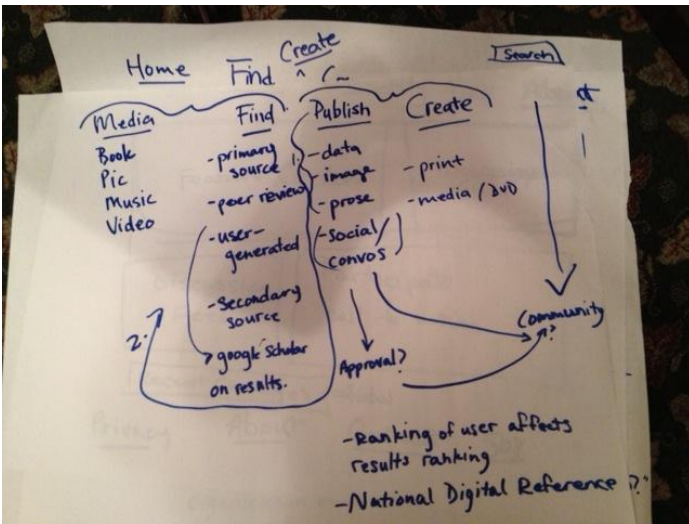 Create
Home Find ^
Search
Media
Book
Pic
Music
Video
Find
-primary
source
-peer review
-user-
generated
-Secondary
source
google Scholar
on results.
Publish
1.-data
-image
-prose
-social/
convos
Create
-print
-media/DVD
2.
Approval?
Community
?
-Ranking of user affects
results ranking
-National Digital Reference ?"
Privacy About